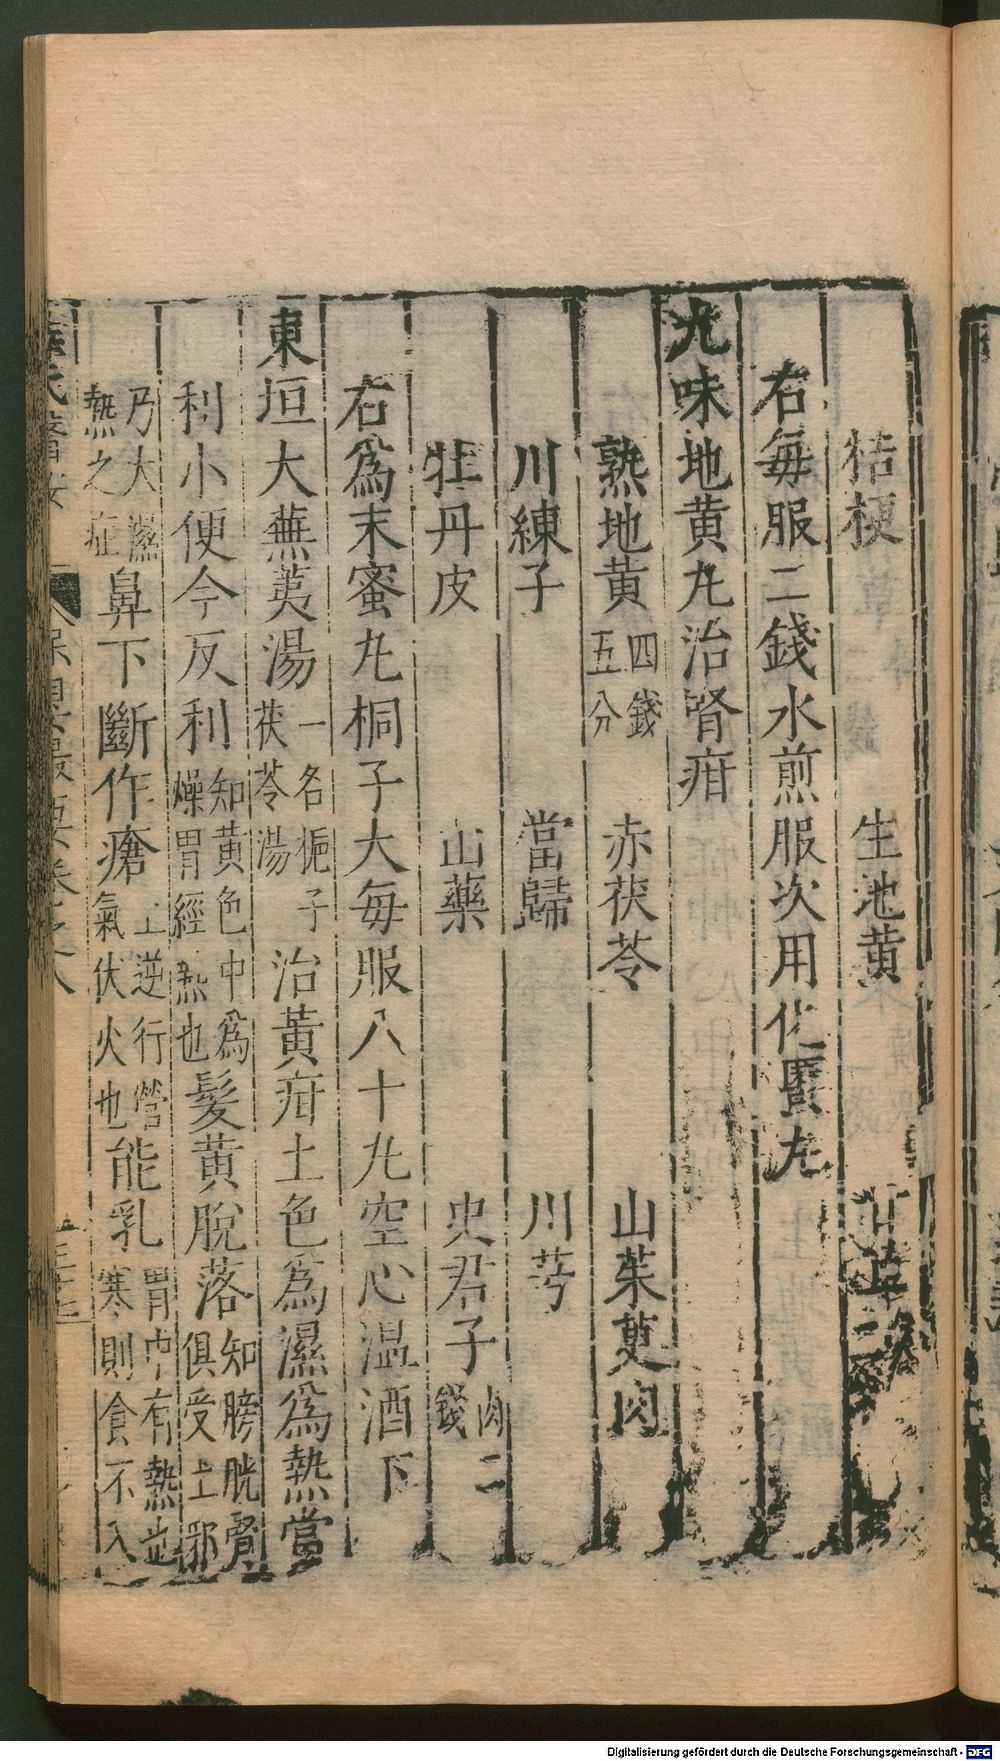 桔梗 生地黄 甘草二
右每服二錢水煎服次用化䘌丸
九味地黄丸治腎疳
熟地黄四錢五分 赤茯苓 山茱萸肉
川練子 當歸 川芎
牡丹皮 山藥 史君子肉二錢
右爲末蜜丸桐子大每服八十丸空心温酒下
東垣大蕪荑湯一名梔子茯苓湯治黄疳土色爲濕爲熱當
利小便今反利知黄色中爲燥胃經熱也髪黄脫落知膀胱腎俱受土邪
乃大濕熱之症鼻下斷作瘡上逆行營氣伏火也能乳胃中有熱寒則食不入
Digitalisierung gefördert durch die Deutsche Forschungsgemeinschaft - DFG